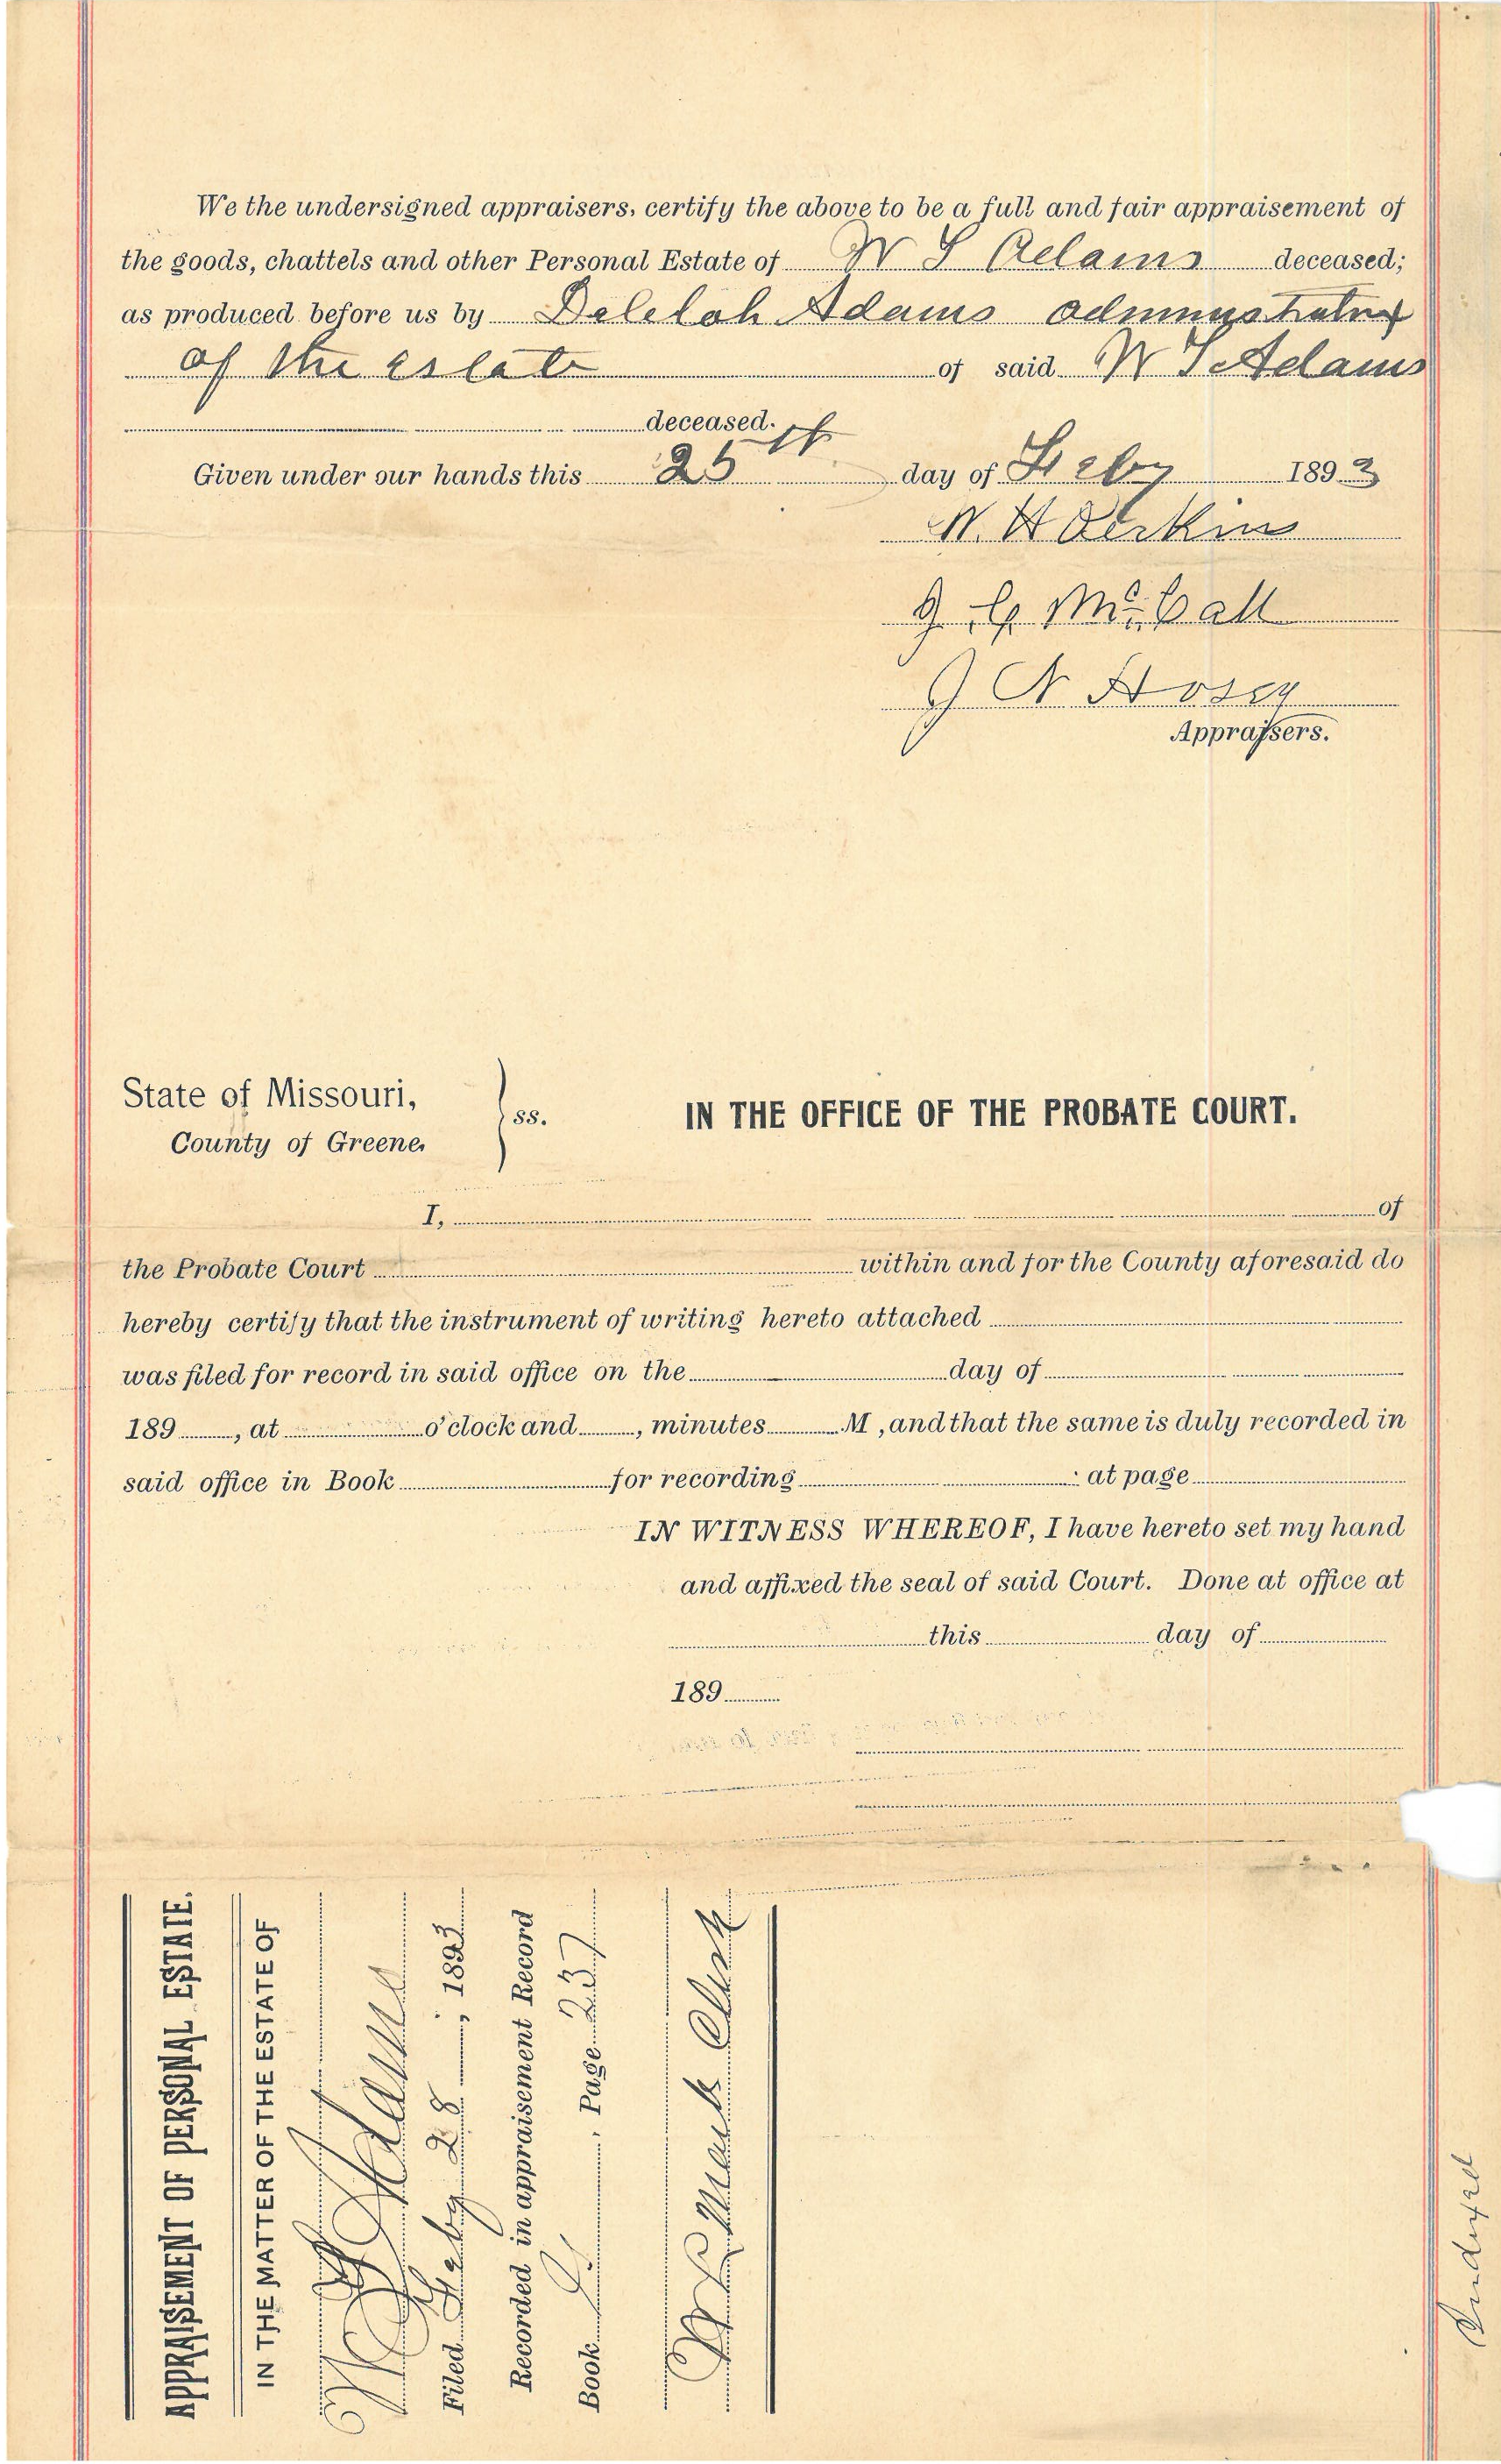 We the undersigned appraisers, certify the above to be a full and fair appraisement of
the goods, chattels and other Personal Estate of W S Adams deceased;
as produced before us by Delilah Adams adminystratrix
of the estate of said W S Adams
deceased.
Given under our hands this 25th day of Feby 1893
W. H
J. G. McCall
J N Hosey
Appraisers.
State of Missouri,
County of Greene, } ss. IN THE OFFICE OF THE PROBATE COURT.
I, of
the Probate Court within and for the County aforesaid do
hereby certify that the instrument of writing hereto attached
was filed for record in said office on the day of
189 , at o'clock and , minutes M , and that the same is duly recorded in
said office in Book for recording at page
IN WITNESS WHEREOF, I have hereto set my hand
and affixed the seal of said Court. Done at office at
this day of
189
APPRAISEMENT OF PERSONAL ESTATE.
IN THE MATTER OF THE ESTATE OF
W S Adams
Filed Feby 28 , 1893
Recorded in appraisement Record
Book , Page 237
Clerk
Indexed